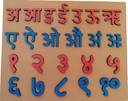 अ आ इ ई उ ऊ ऋ
ए ऐ ओ औ अं अः
१ २ ३ ४ ५
६ ७ ८ ९ १०